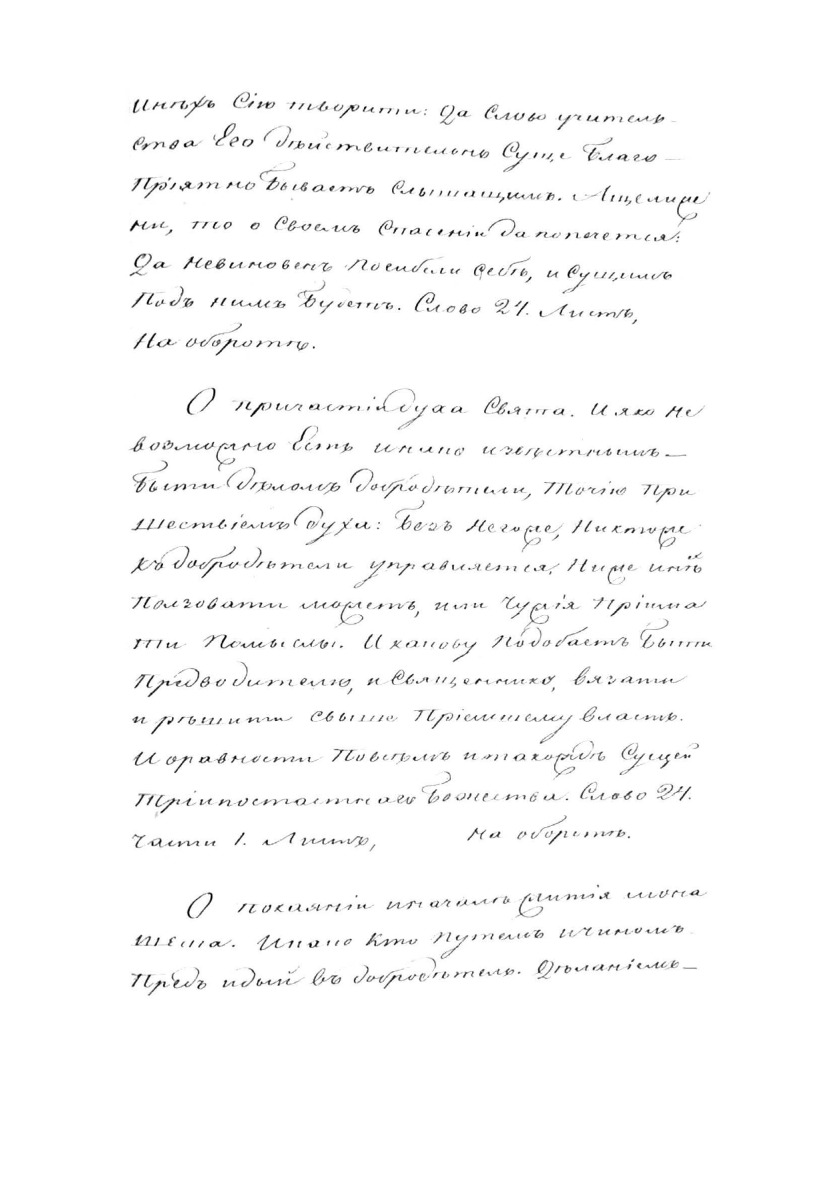 Инѣхъ Сію творити: Да Слово учитель-
ства Его дѣйствительнѣ Суще Благо-
Пріятно Бываетъ Слышащимъ. Аще лиже
ни, то о Своемъ Спасеніи да попечется:
Да Невиновенъ Погибели Себѣ, и Сущимъ
Подъ нимъ Будетъ. Слово 24. Листъ,
На оборотѣ.
О причастіи духа Свята. И яко не
возможно Есть инако извѣстнымъ-
Быти дѣломъ добродѣтели, Точію При
Шествіемъ духа: Безъ Негоже, Никтоже
къ добродѣтели управляется, Ниже инѣхъ
Ползовати можетъ, или Чужія Пріима
ти Помыслы. И какову Подобаетъ Быти
Предводителю, и Священнику, вязати
и рѣшити свыше Пріемшему власть.
И о равности Повсѣмъ и такождѣ Сущей
Тріипостастнаго Божества. Слово 24.
Части 1. Листъ, На оборотѣ.
О покаяніи и началѣ житія мона
шеша. И како Кто Путемъ и чиномъ
Предъ идый въ добродѣтель. Дѣланіемъ-